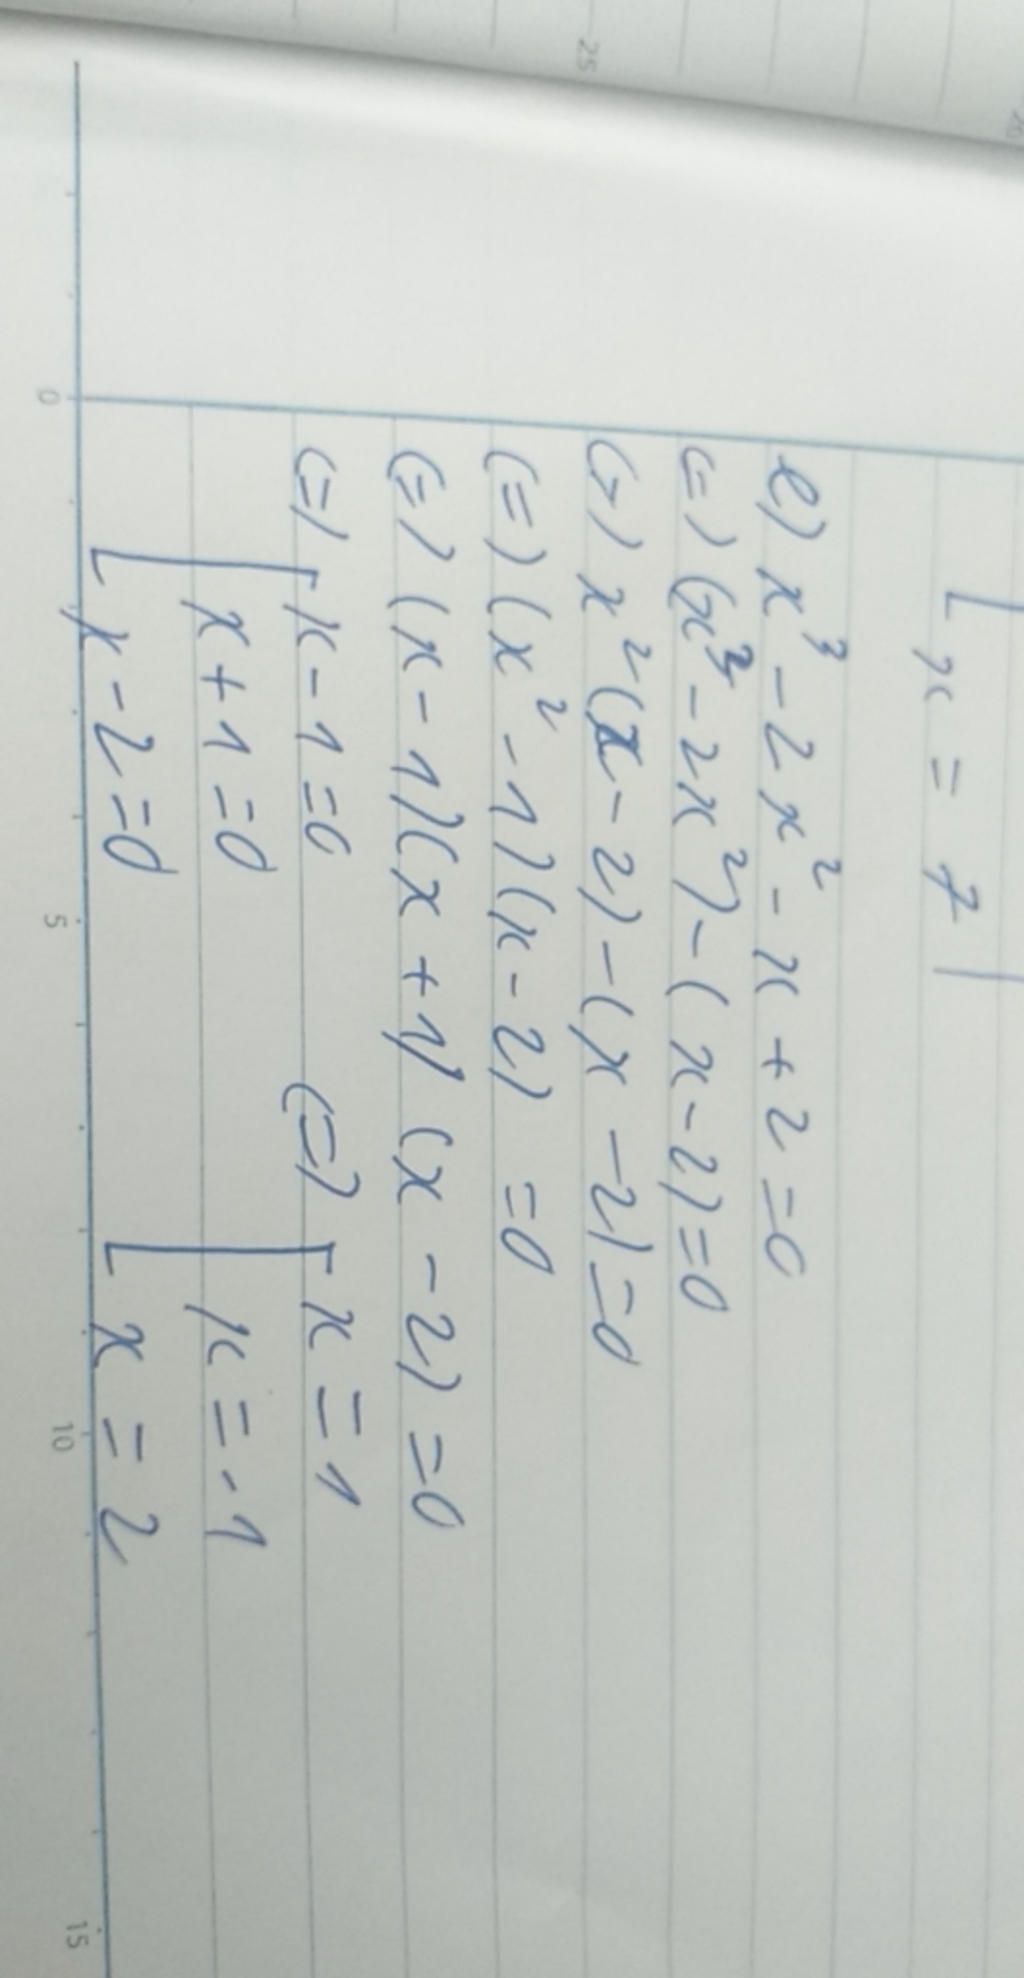 x = 7
e) x³ - 2x² - x + 2 = 0
(=) (x³ - 2x²) - (x - 2) = 0
(=) x²(x - 2) - (x - 2) = 0
(=) (x² - 1)(x - 2) = 0
(=) (x - 1)(x + 1)(x - 2) = 0
(=) [ x - 1 = 0 (=) [ x = 1
x + 1 = 0 x = -1
x - 2 = 0 x = 2
0 5 10 15
25 26